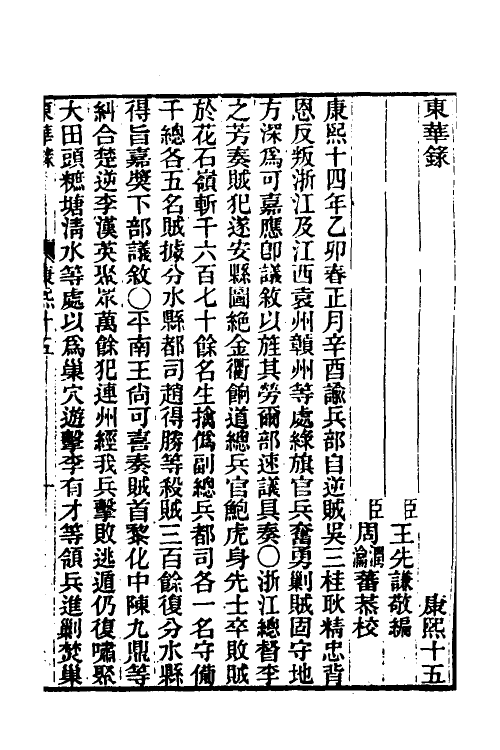 東華錄　康熙十五
臣王先謙敬編
臣周潤蕃瀹蕃恭校
康熙十四年乙卯春正月辛酉諭兵部自逆賊吳三桂耿精忠背
恩反叛浙江及江西袁州贛州等處綠旗官兵奮勇剿賊固守地
方深爲可嘉應卽議敘以旌其勞爾部速議具奏〇浙江總督李
之芳奏賊犯遂安縣圖絶金衢餉道總兵官鮑虎身先士卒敗賊
於花石嶺斬千六百七十餘名生擒僞副總兵都司各一名守備
千總各五名賊據分水縣都司趙得勝等殺賊三百餘復分水縣
得旨嘉獎下部議敘〇平南王尙可喜奏賊首黎化中陳九鼎等
糾合楚逆李漢英聚眾萬餘犯連州經我兵擊敗逃遁仍復嘯聚
大田頭樜塘淸水等處以爲巢穴遊擊李有才等領兵進剿焚巢
東華錄　康熙十五　一